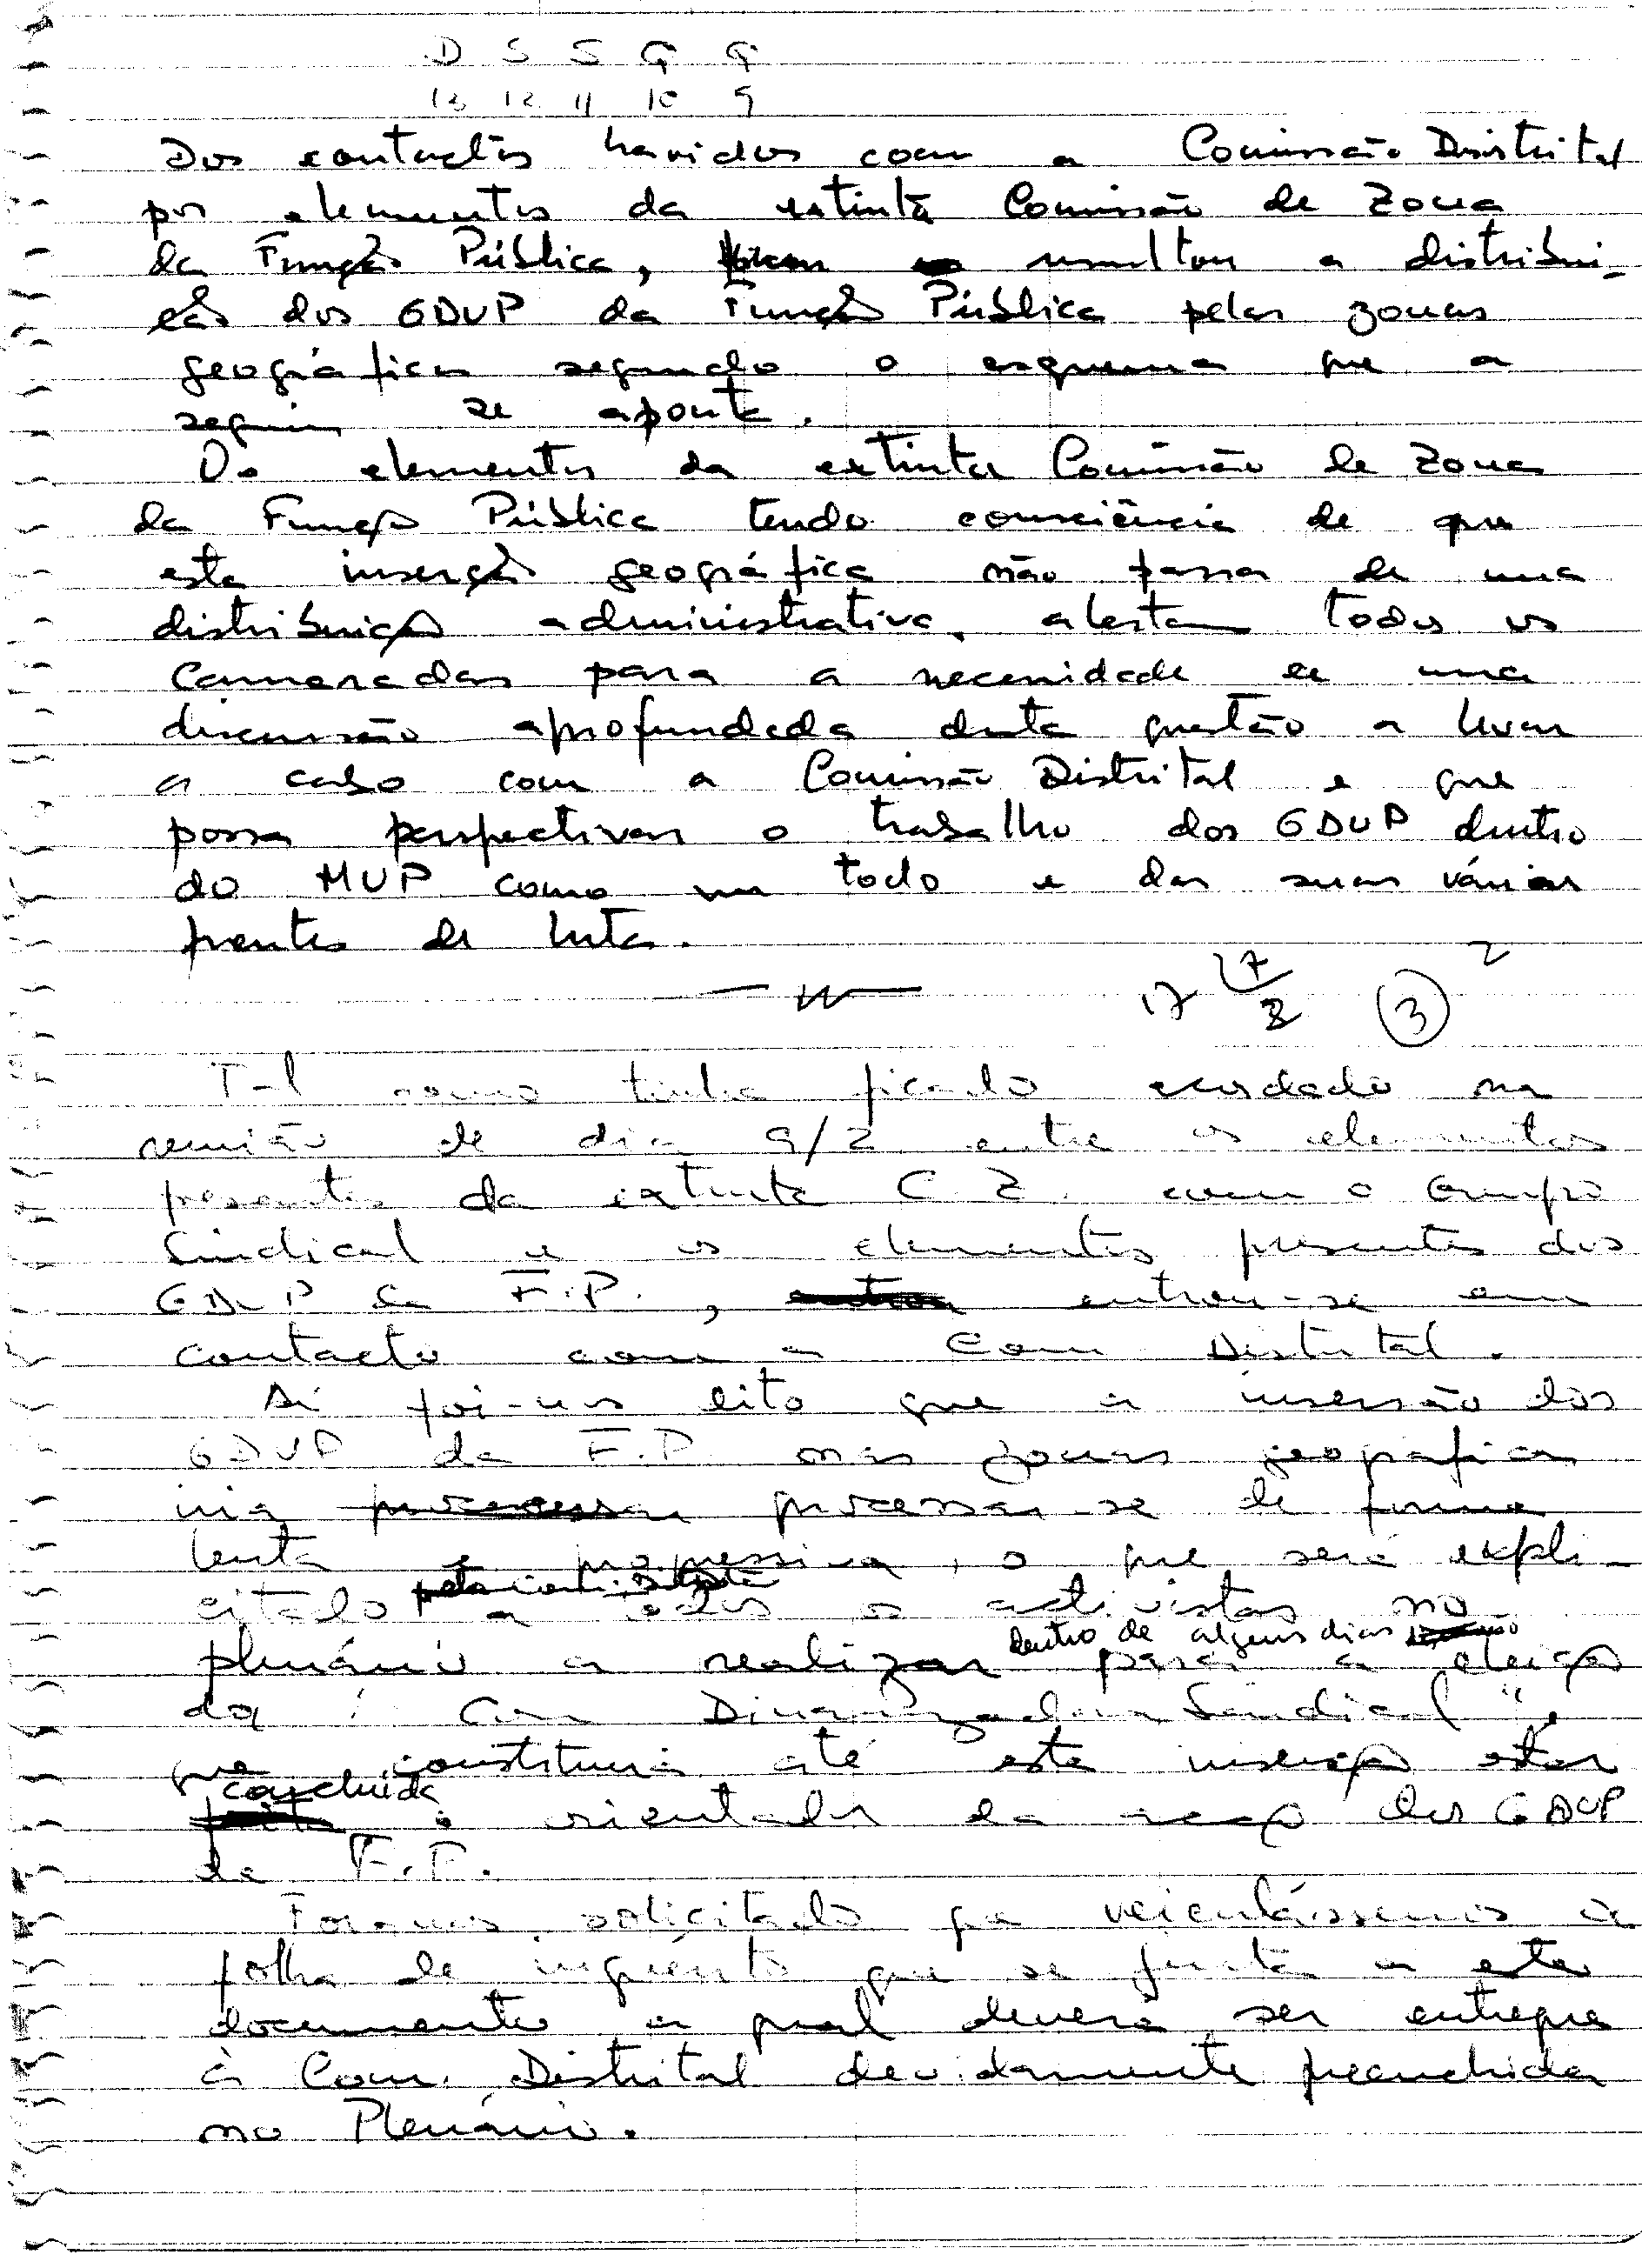 D S S Q Q
13 12 11 10 9
Dos contactos havidos com a Comissão Distrital
por elementos da extinta Comissão de Zona
da Função Pública, resultou a distribui-
ção dos GDUP da Função Pública pelas zonas
geográficas segundo o esquema que a
seguir se aponta.
Os elementos da extinta Comissão de Zona
da Função Pública tendo consciência de que
esta inserção geográfica não passa de uma
distribuição administrativa, alertam todos os
camaradas para a necessidade de uma
discussão aprofundada desta questão a levar
a cabo com a Comissão Distrital e que
possa perspectivar o trabalho dos GDUP dentro
do MUP como um todo e das suas várias
frentes de luta.
17 17/2 ③ 2
Tal como tinha ficado acordado na
reunião de dia 9/2 entre os elementos
presentes da extinta C. Z. com o Grupo
Sindical e os elementos presentes dos
GDUP da F.P., entrou-se em
contacto com a Com Distrital.
Aí foi-nos dito que a inserção dos
GDUP da F.P. nas zonas geográficas
iria processar-se de forma
lenta e progressiva, o que será expli-
citado a todos os activistas no
plenário a realizar dentro de alguns dias para a eleição
da "Com Dinamizadora Sindical"
que constituirá até esta inserção estar
concluída o orientador da acção dos GDUP
da F.P.
Foi-nos solicitado que veiculássemos a
folha de inquérito que se junta a este
documento a qual deverá ser entregue
à Com. Distrital devidamente preenchida
no Plenário.